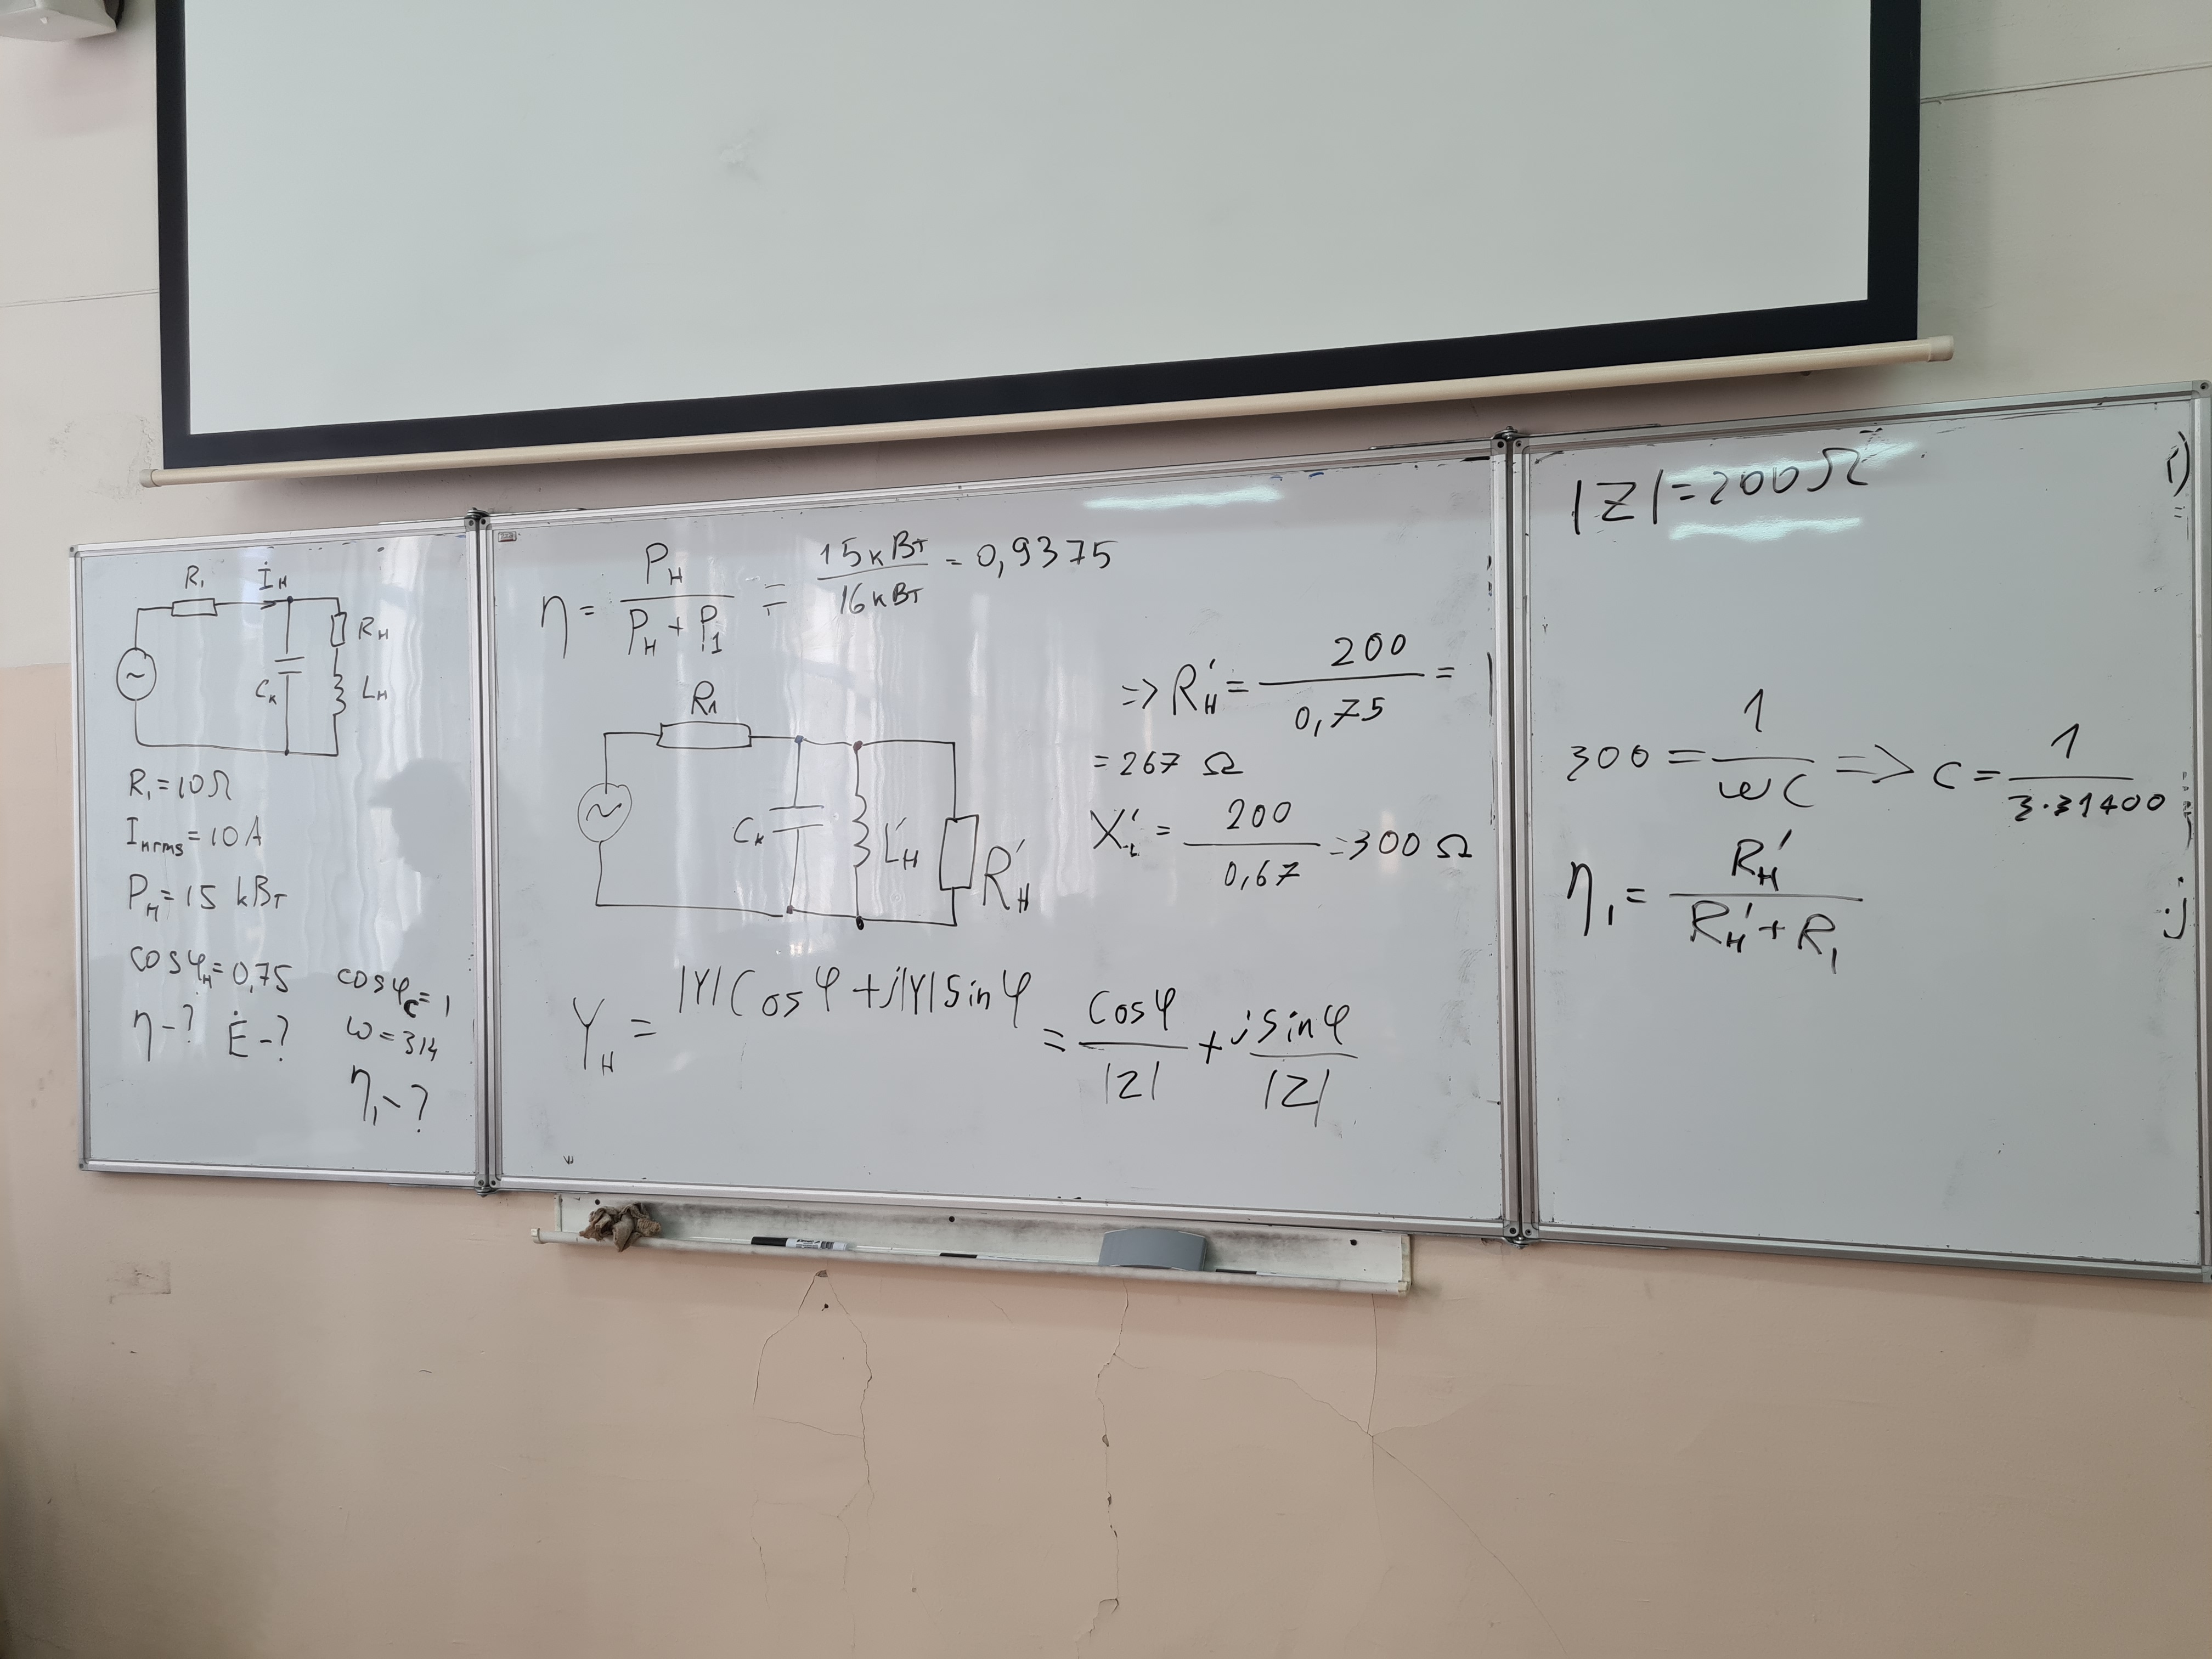 R₁
İн
Rн
Cк
Lн
R₁=10Ω
Iнrms=10A
Pн=15 кВт
cosφн=0,75
cosφc=1
η-? Ė-?
ω=314
η₁-?
η = Pн / (Pн + P1) = 15кВт / 16кВт = 0,9375
R1
Cк
L'н
R'н
=> R'н = 200 / 0,75 =
= 267 Ω
X'L = 200 / 0,67 = 300 Ω
Yн = |Y|Cosφ + j|Y|Sinφ = Cosφ / |Z| + jSinφ / |Z|
|Z|=200Ω
300 = 1 / ωC => C = 1 / 3·31400
η₁ = R'н / (R'н + R₁)